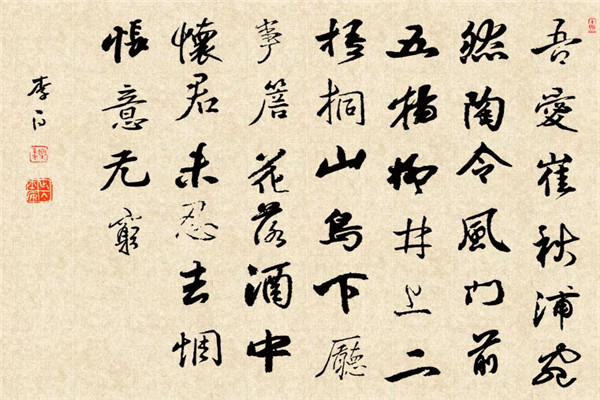 吾愛崔秋浦宛
然陶令風門前
五楊柳井上二
梧桐山鳥下廳
事簷花落酒中
懷君未忍去惆
悵意无窮
李白